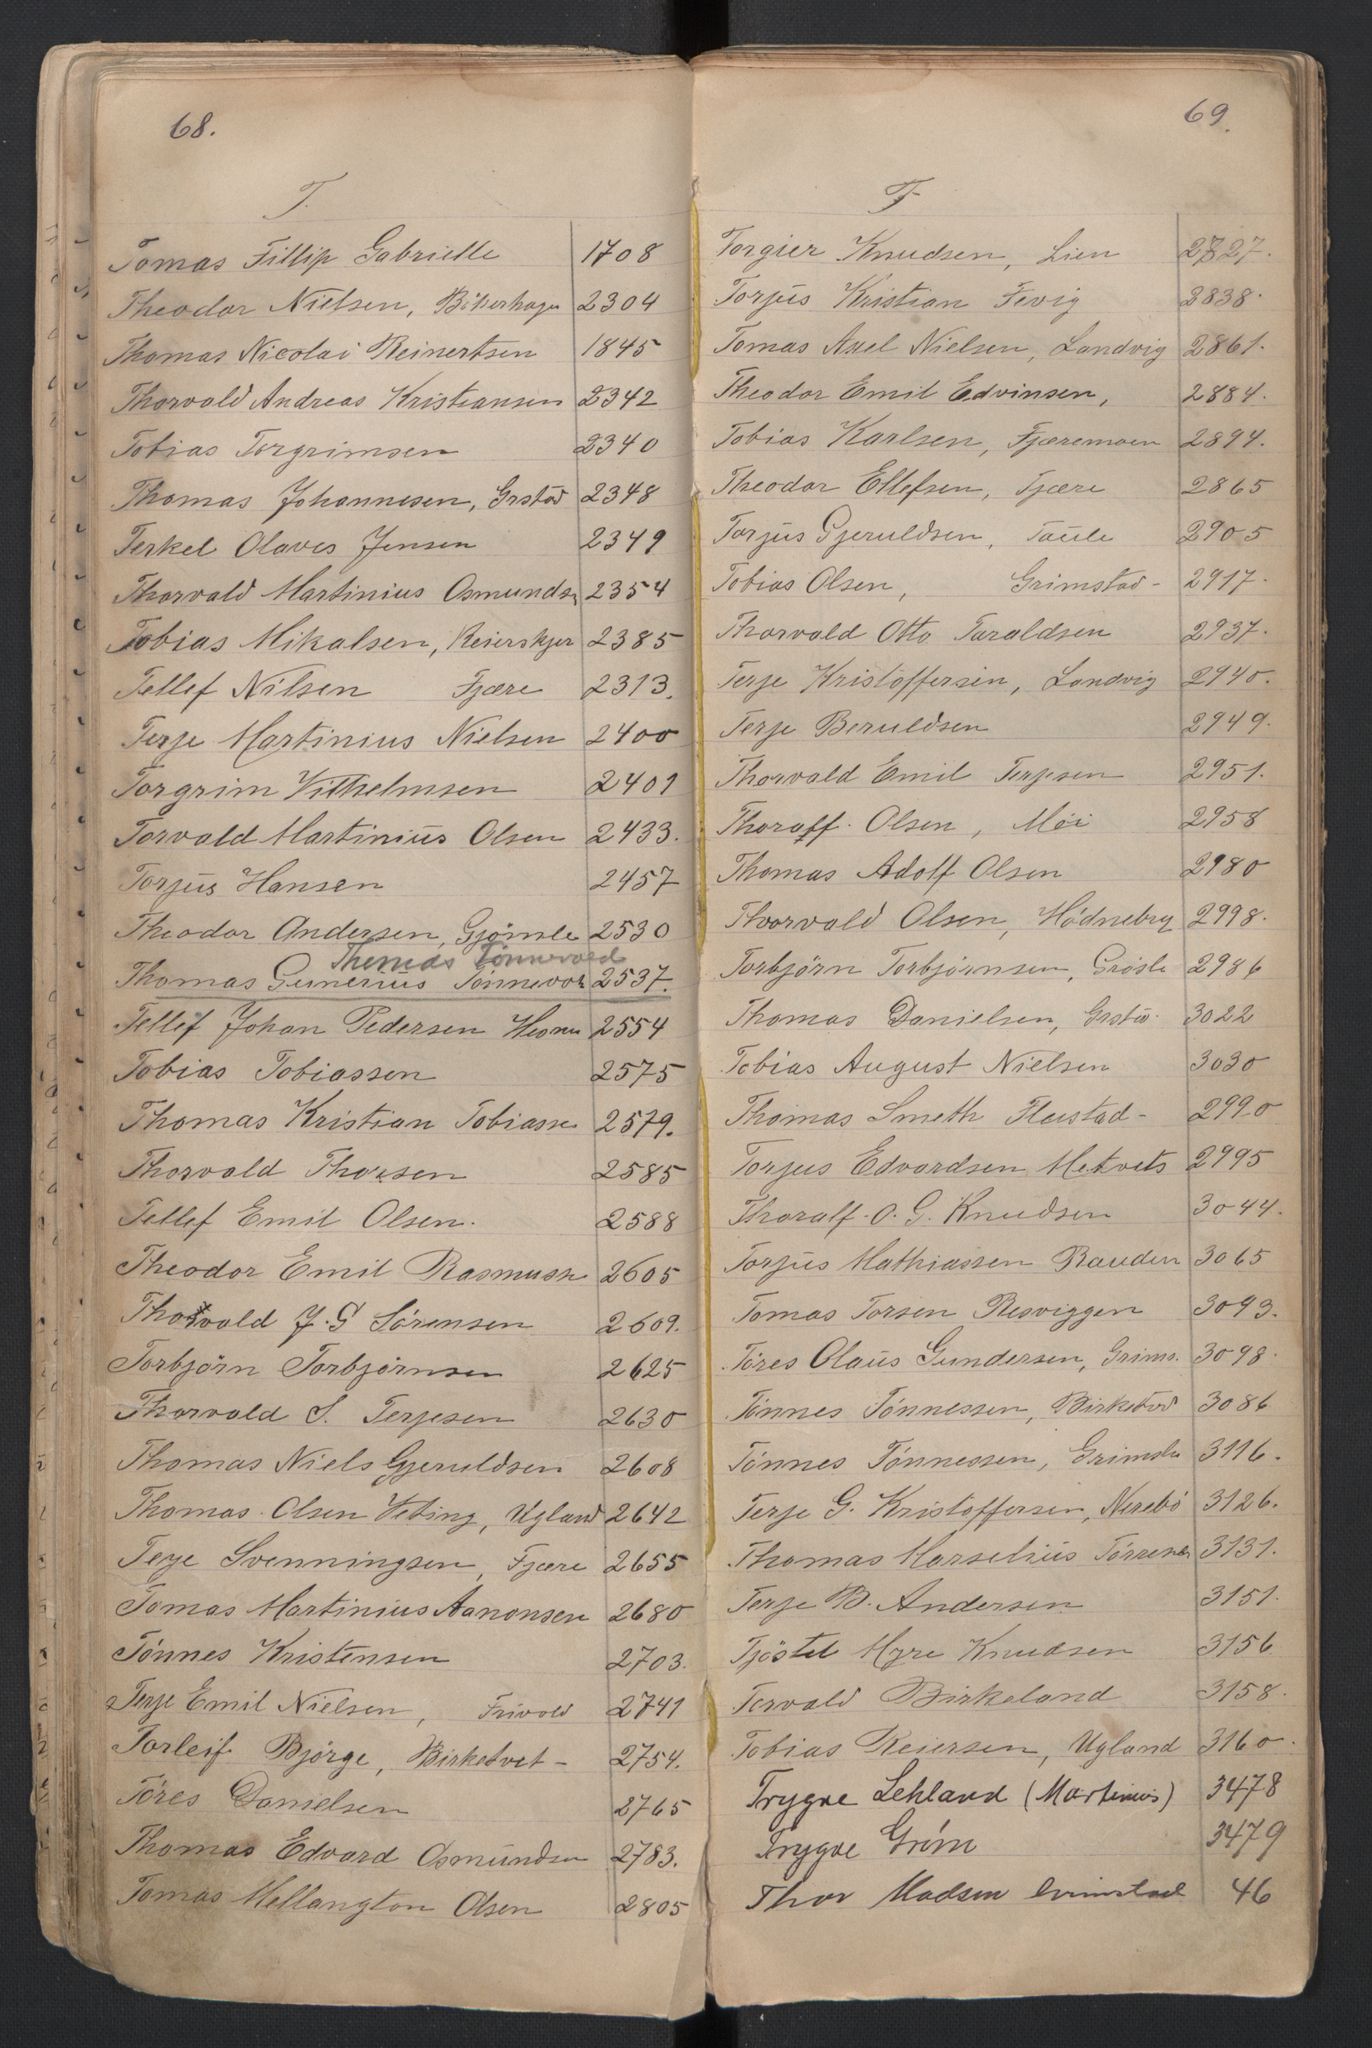 68.
T.
Tomas Fillip Gabrielle 1708
Theodor Nielsen, 2304
Thomas Nicolai Reinertsen 1845
Thorvald Andreas Kristiansen 2342
Tobias Torgrimsen 2340
Thomas Johannesen, Grstad 2348
Terkel Olaves Jensen 2349
Thorvald Martinius Osmundsn 2354
Tobias Mikalsen, Reierskjer 2385
Tellef Nilsen Fjære 2313.
Terje Martinius Nielsen 2400
Torgrim Vilhelmsen 2401
Torvald Martinius Olsen 2433.
Torjus Hansen 2457
Theodor Andersen, Gjömle 2530
Thomas Tönnevold
Thomas Gunerius Tönnevol 2537.
Tellef Johan Pedersen Hesnes 2554
Tobias Tobiassen 2575
Thomas Kristian Tobiasse 2579.
Thorvald Thorsen 2585
Tellef Emil Olsen. 2588
Theodor Emil Rasmussn 2605
Thorvald J. G Sörensen 2609.
Torbjörn Torbjörnsen 2625
Thorvald S. Terjesen 2630
Thomas Niels Gjeruldsen 2608
Thomas Olsen Vebing, Ugland 2642
Terje Svenningsen, Fjære 2655
Tomas Martinius Aanonsen 2680
Tönnes Kristensen 2703.
Terje Emil Nielsen, Frivold 2741
Torleif Björge, Birketvet - 2754.
Töres Danielsen 2765
Thomas Edvard Osmundsn 2783.
Tomas Mellangton Olsen 2805
69.
T.
Torgier Knudsen, Lien 2727.
Torjus Kristian Fevig 2838.
Tomas Axel Nielsen, Landvig 2861.
Theodor Emil Edvinsen, 2884.
Tobias Karlsen, Fjæremoen 2894.
Theodor Ellefsen, Fjære 2865
Torjus Gjeruldsen, Taule 2905
Tobias Olsen, Grimstad - 2917.
Thorvald Otto Taraldsen 2937.
Terje Kristoffersen, Landvig 2940.
Terje Beruldsen 2949.
Thorvald Emil Terjesen 2951.
Thoralf. Olsen, Möi 2958
Thomas Adolf Olsen 2980
Thorvald Olsen, Hödnebrg 2998.
Torbjörn Torbjörnsen, Grösle 2986
Thomas Danielsen, Grstad. 3022
Tobias August Nielsen 3030
Thomas Smeth Flustad - 2990
Torjus Edvardsen Metvets 2995
Thoralf. O. G. Knudsen 3044.
Torjus Mathiassen Rauden 3065
Tomas Torsen Resviggen 3093.
Töres Olaus Gundersen, Grims. 3098.
Tönnes Tönnessen, Birketvd 3086
Tönnes Tönnessen, Grimsta 3116.
Terje G. Kristoffersen, Nerebö 3126.
Thomas Marselius Törresen 3131.
Terje B. Andersen 3151.
Tjöstel Myre Knudsen 3156
Torvald Birkeland 3158.
Tobias Reiersen, Ugland 3160.
Trygve Lehland (Martinius) 3478
Trygve Gröm 3479
Thor Madsen Grimstad 46